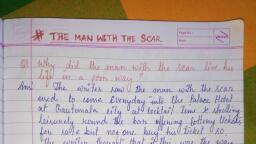 # THE MAN WITH THE SCAR
Q1 Why did the man with the scar live his
life in a poor way?
Ans The writer saw the man with the scar
used to come everyday into the Palace Hotel
at Gautemala city at cocktail time & strolling
leisurely round the bar offering lottery tickets
for sale but no one buy his ticket so
the writer thought that this was the way